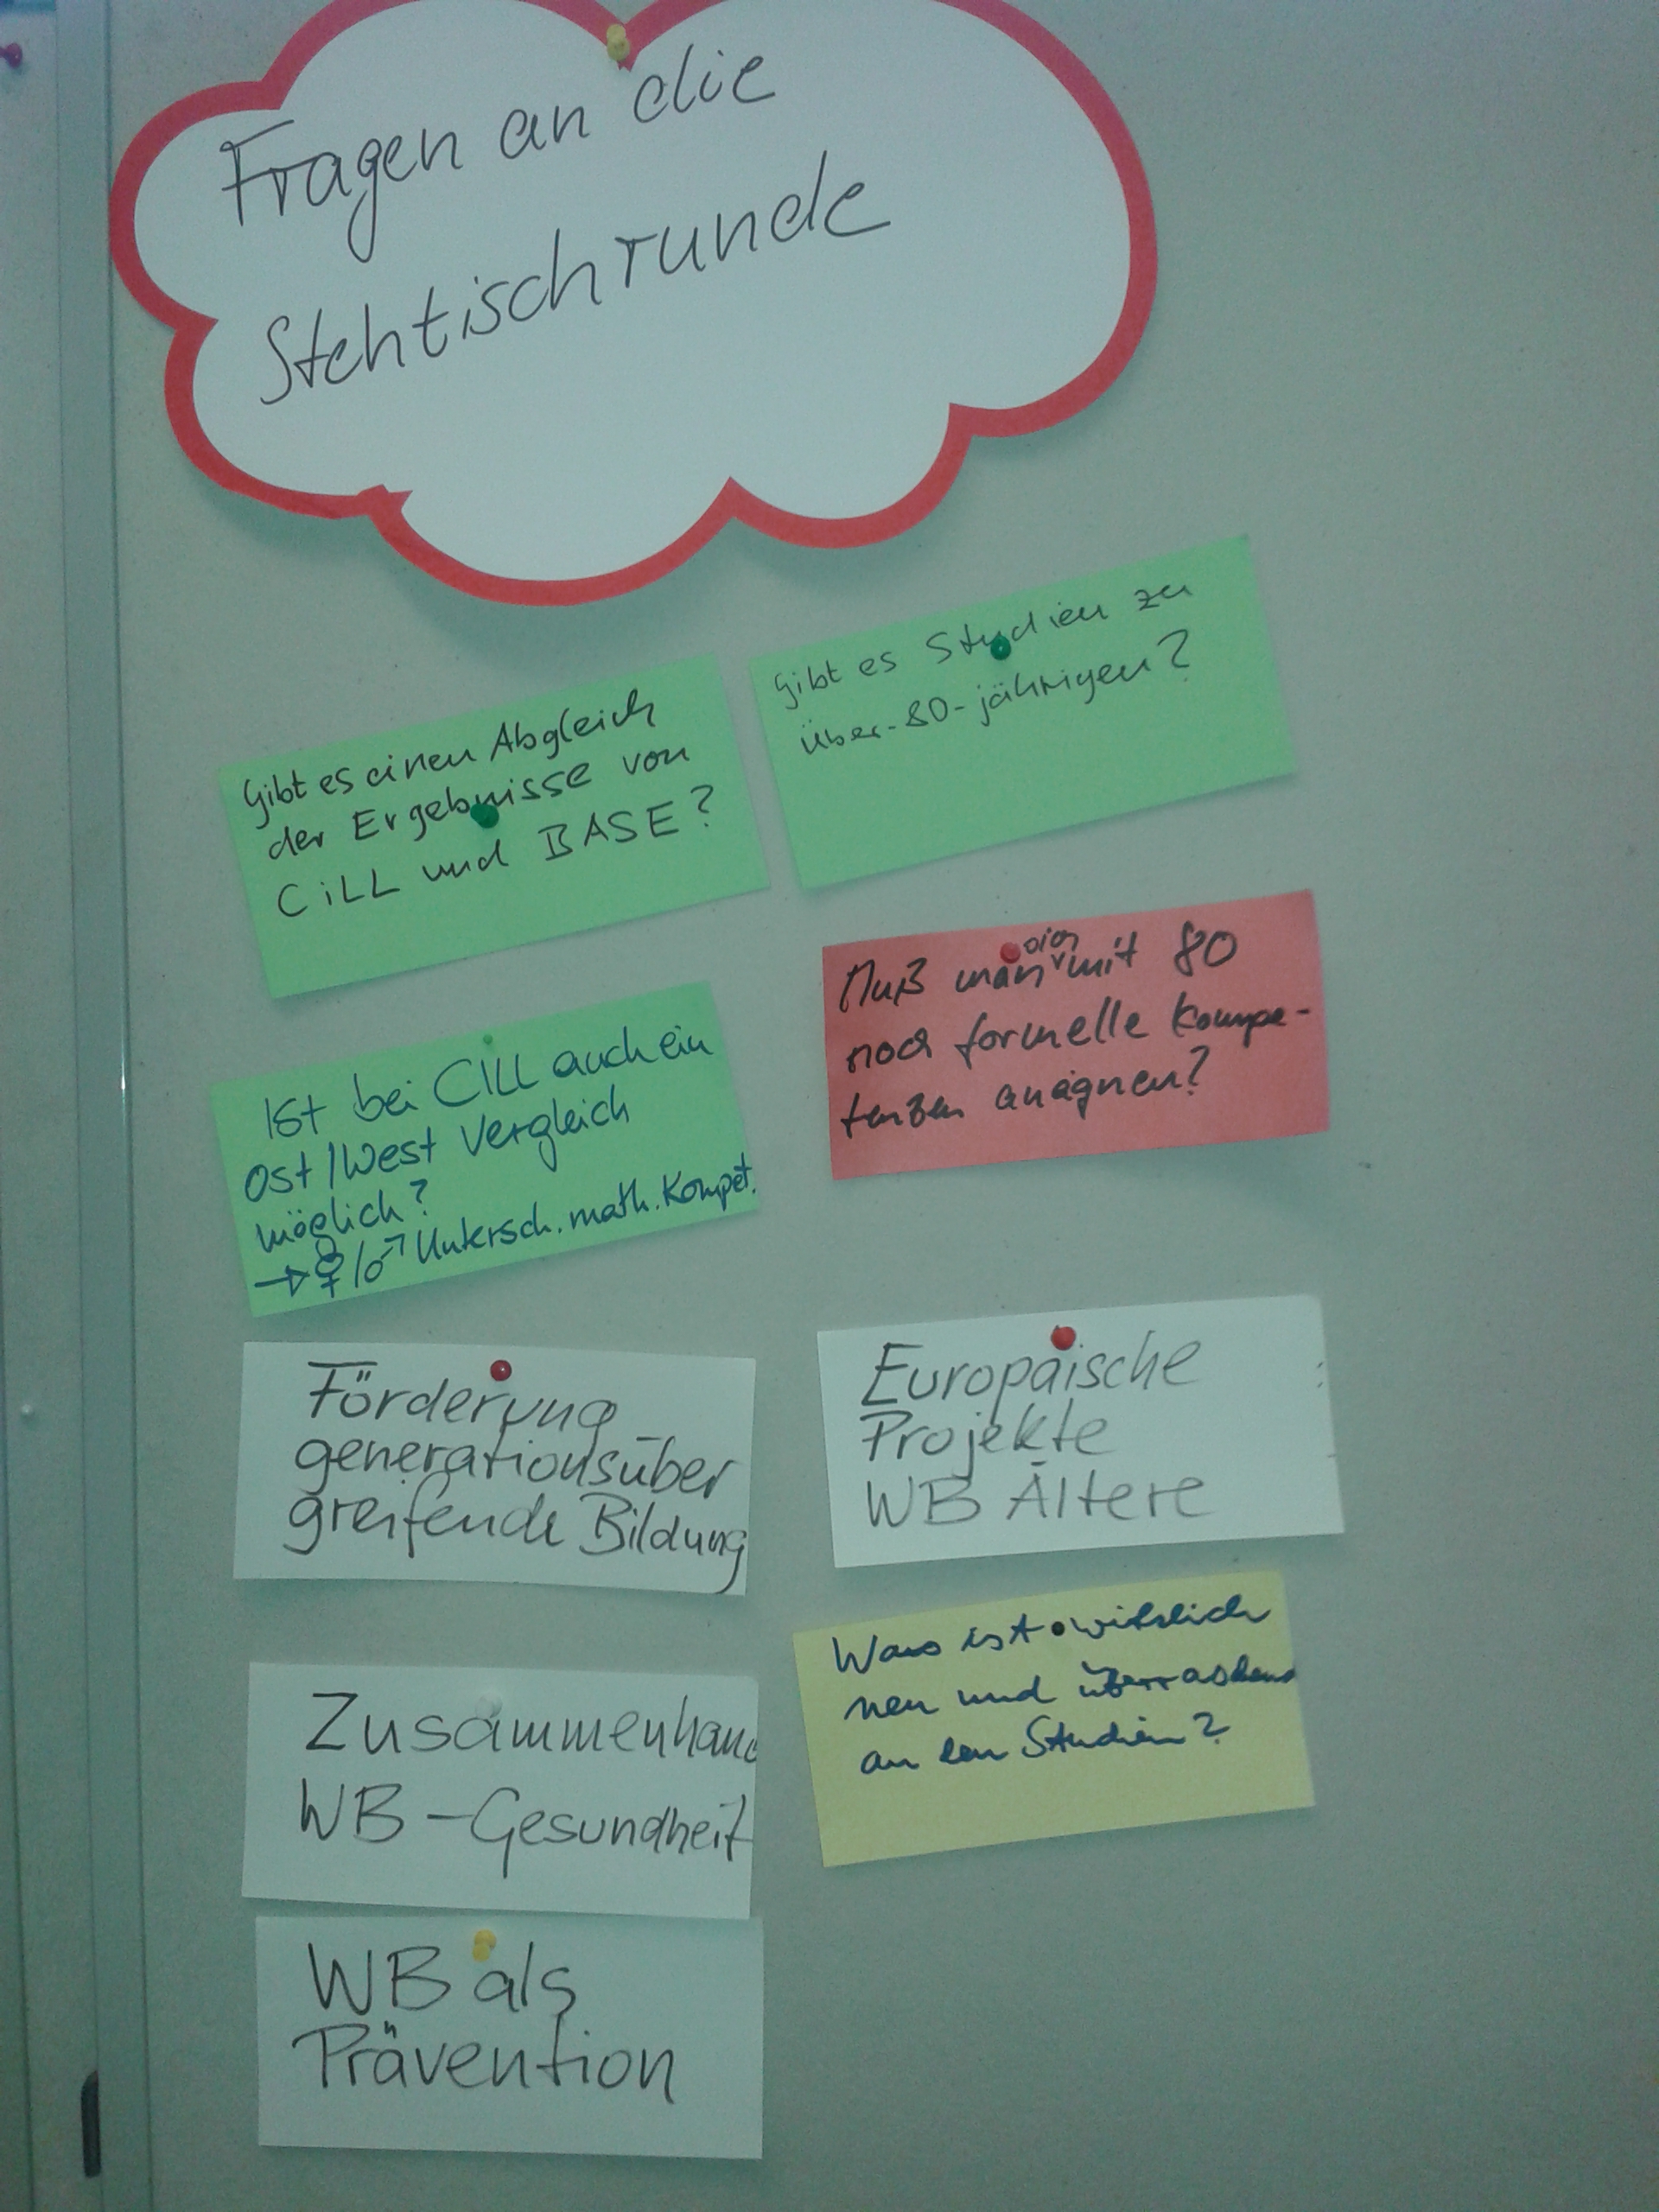 Fragen an die
Stehtischrunde
Gibt es einen Abgleich
der Ergebnisse von
CiLL und BASE?
Gibt es Studien zu
über-80-jährigen?
Ist bei CILL auch ein
Ost/West Vergleich
möglich?
→ ♀/♂ Untersch. math. Kompet.
Muß man sich mit 80
noch formelle Kompe-
tenzen aneignen?
Förderung
generationsüber
greifende Bildung
Europäische
Projekte
WB Ältere
Zusammenhang
WB - Gesundheit
Was ist wirklich
neu und überraschend
an den Studien?
WB als
Prävention